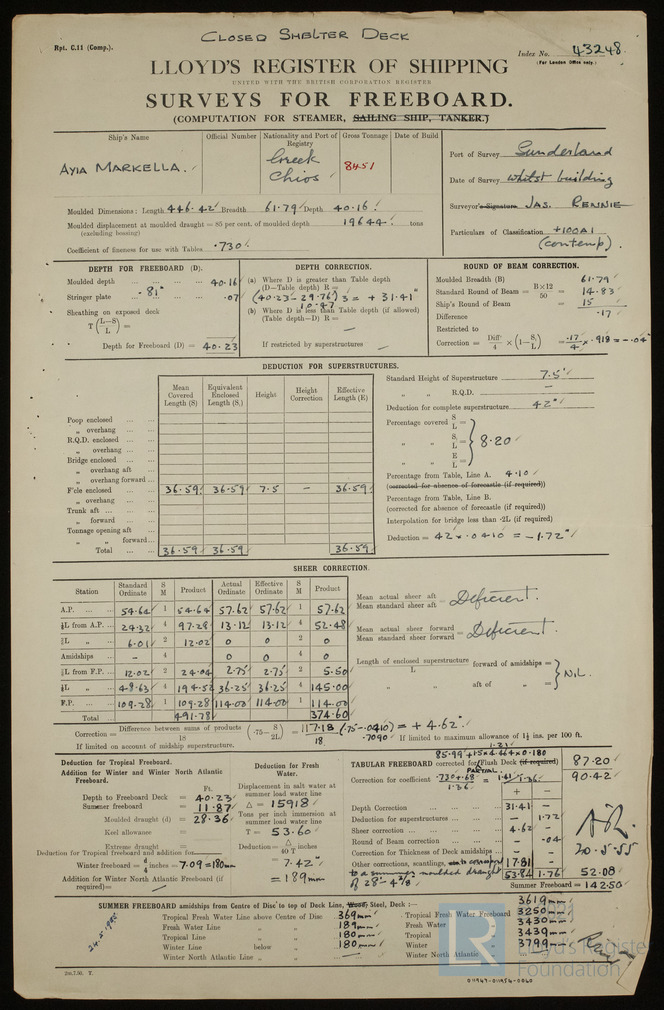 CLOSED SHELTER DECK
Rpt. C.11 (Comp.).
Index No. 43248
(For London Office only.)
LLOYD'S REGISTER OF SHIPPING
UNITED WITH THE BRITISH CORPORATION REGISTER
SURVEYS FOR FREEBOARD.
(COMPUTATION FOR STEAMER, SAILING SHIP, TANKER.)
Ship's Name Official Number Nationality and Port of Registry Gross Tonnage Date of Build
AYIA MARKELLA. Greek Chios 8451
Port of Survey Sunderland
Date of Survey Whilst building
Surveyor's Signature JAS. RENNIE
Particulars of Classification +100A1 (contemp).
Moulded Dimensions: Length 446.42 Breadth 61.79 Depth 40.16
Moulded displacement at moulded draught = 85 per cent. of moulded depth 19644 tons
(excluding bossing)
Coefficient of fineness for use with Tables .730
DEPTH FOR FREEBOARD (D).
Moulded depth 40.16
Stringer plate .81" .07
Sheathing on exposed deck
T (L-S / L) =
Depth for Freeboard (D) = 40.23
DEPTH CORRECTION.
(a) Where D is greater than Table depth
(D—Table depth) R =
(40.23 - 29.76) 3 = + 31.41"
10.47
(b) Where D is less than Table depth (if allowed)
(Table depth—D) R =
If restricted by superstructures
ROUND OF BEAM CORRECTION.
Moulded Breadth (B) 61.79
Standard Round of Beam = B×12 / 50 = 14.83
Ship's Round of Beam = 15
Difference .17
Restricted to
Correction = Diff / 4 × (1 - S₁ / L) = .17 / 4 × .918 = -.04
DEDUCTION FOR SUPERSTRUCTURES.
Mean Covered Length (S) Equivalent Enclosed Length (S₁) Height Height Correction Effective Length (E)
Poop enclosed
„ overhang
R.Q.D. enclosed
„ overhang
Bridge enclosed
„ overhang aft
„ overhang forward
F'cle enclosed 36.59 36.59 7.5 — 36.59
„ overhang
Trunk aft
„ forward
Tonnage opening aft
„ „ forward
Total 36.59 36.59 36.59
Standard Height of Superstructure 7.5'
„ „ R.Q.D. —
Deduction for complete superstructure 42"
Percentage covered S / L =
„ „ S₁ / L = 8.20
„ „ E / L =
Percentage from Table, Line A. 4.10
(corrected for absence of forecastle (if required))
Percentage from Table, Line B.
(corrected for absence of forecastle (if required))
Interpolation for bridge less than ·2L (if required)
Deduction = 42 x .0410 = -1.72"
SHEER CORRECTION.
Station Standard Ordinate S M Product Actual Ordinate Effective Ordinate S M Product
A.P. 54.64 1 54.64 57.62 57.62 1 57.62
⅙L from A.P. 24.32 4 97.28 13.12 13.12 4 52.48
⅓L „ 6.01 2 12.02 0 0 2 0
Amidships — 4 0 0 4 0
⅓L from F.P. 12.02 2 24.04 2.75 2.75 2 5.50
⅙L „ 48.63 4 194.52 36.25 36.25 4 145.00
F.P. 109.28 1 109.28 114.00 114.00 1 114.00
Total 491.78 374.60
Mean actual sheer aft / Mean standard sheer aft = Deficient.
Mean actual sheer forward / Mean standard sheer forward = Deficient.
Length of enclosed superstructure / L forward of amidships =
„ aft of „ = NIL.
Correction = Difference between sums of products / 18 (·75 - S / 2L) = 117.18 / 18 (.75-.0410) = + 4.62"
.7090
If limited on account of midship superstructure.
If limited to maximum allowance of 1½ ins. per 100 ft.
Deduction for Tropical Freeboard.
Addition for Winter and Winter North Atlantic Freeboard.
Ft.
Depth to Freeboard Deck = 40.23
Summer freeboard = 11.87
Moulded draught (d) = 28.36
Keel allowance =
Extreme draught =
Deduction for Tropical freeboard and addition for
Winter freeboard = d / 4 inches = 7.09 = 180mm
Addition for Winter North Atlantic Freeboard (if required) =
Deduction for Fresh Water.
Displacement in salt water at summer load water line
Δ = 15918
Tons per inch immersion at summer load water line
T = 53.60
Deduction = Δ / 40 T inches
= 7.42"
= 189mm
85.99 + 15 x 4.664 x 0.180
TABULAR FREEBOARD corrected for PARTIAL Flush Deck (if required) 87.20
Correction for coefficient .730+.68 / 1.36 = 1.41 / 1.36 90.42
+ −
Depth Correction 31.41 —
Deduction for superstructures — 1.72
Sheer correction 4.62 —
Round of Beam correction — .04
Correction for Thickness of Deck amidships — —
Other corrections, scantlings, 17.81 —
to a summer moulded draught of 28'-4⅜" 53.84 1.76 52.08
Summer Freeboard = 142.50
20.5.55
SUMMER FREEBOARD amidships from Centre of Disc to top of Deck Line, Wood, Steel, Deck :— 3619mm
Tropical Fresh Water Line above Centre of Disc 369mm Tropical Fresh Water Freeboard 3250mm
Fresh Water Line „ „ 189mm Fresh Water „ 3430mm
Tropical Line „ „ 180mm Tropical „ 3439mm
Winter Line below „ 180mm Winter „ 3799mm
Winter North Atlantic Line „ „ — Winter North Atlantic „
Lloyd's Register
Foundation
011947-011954-0060